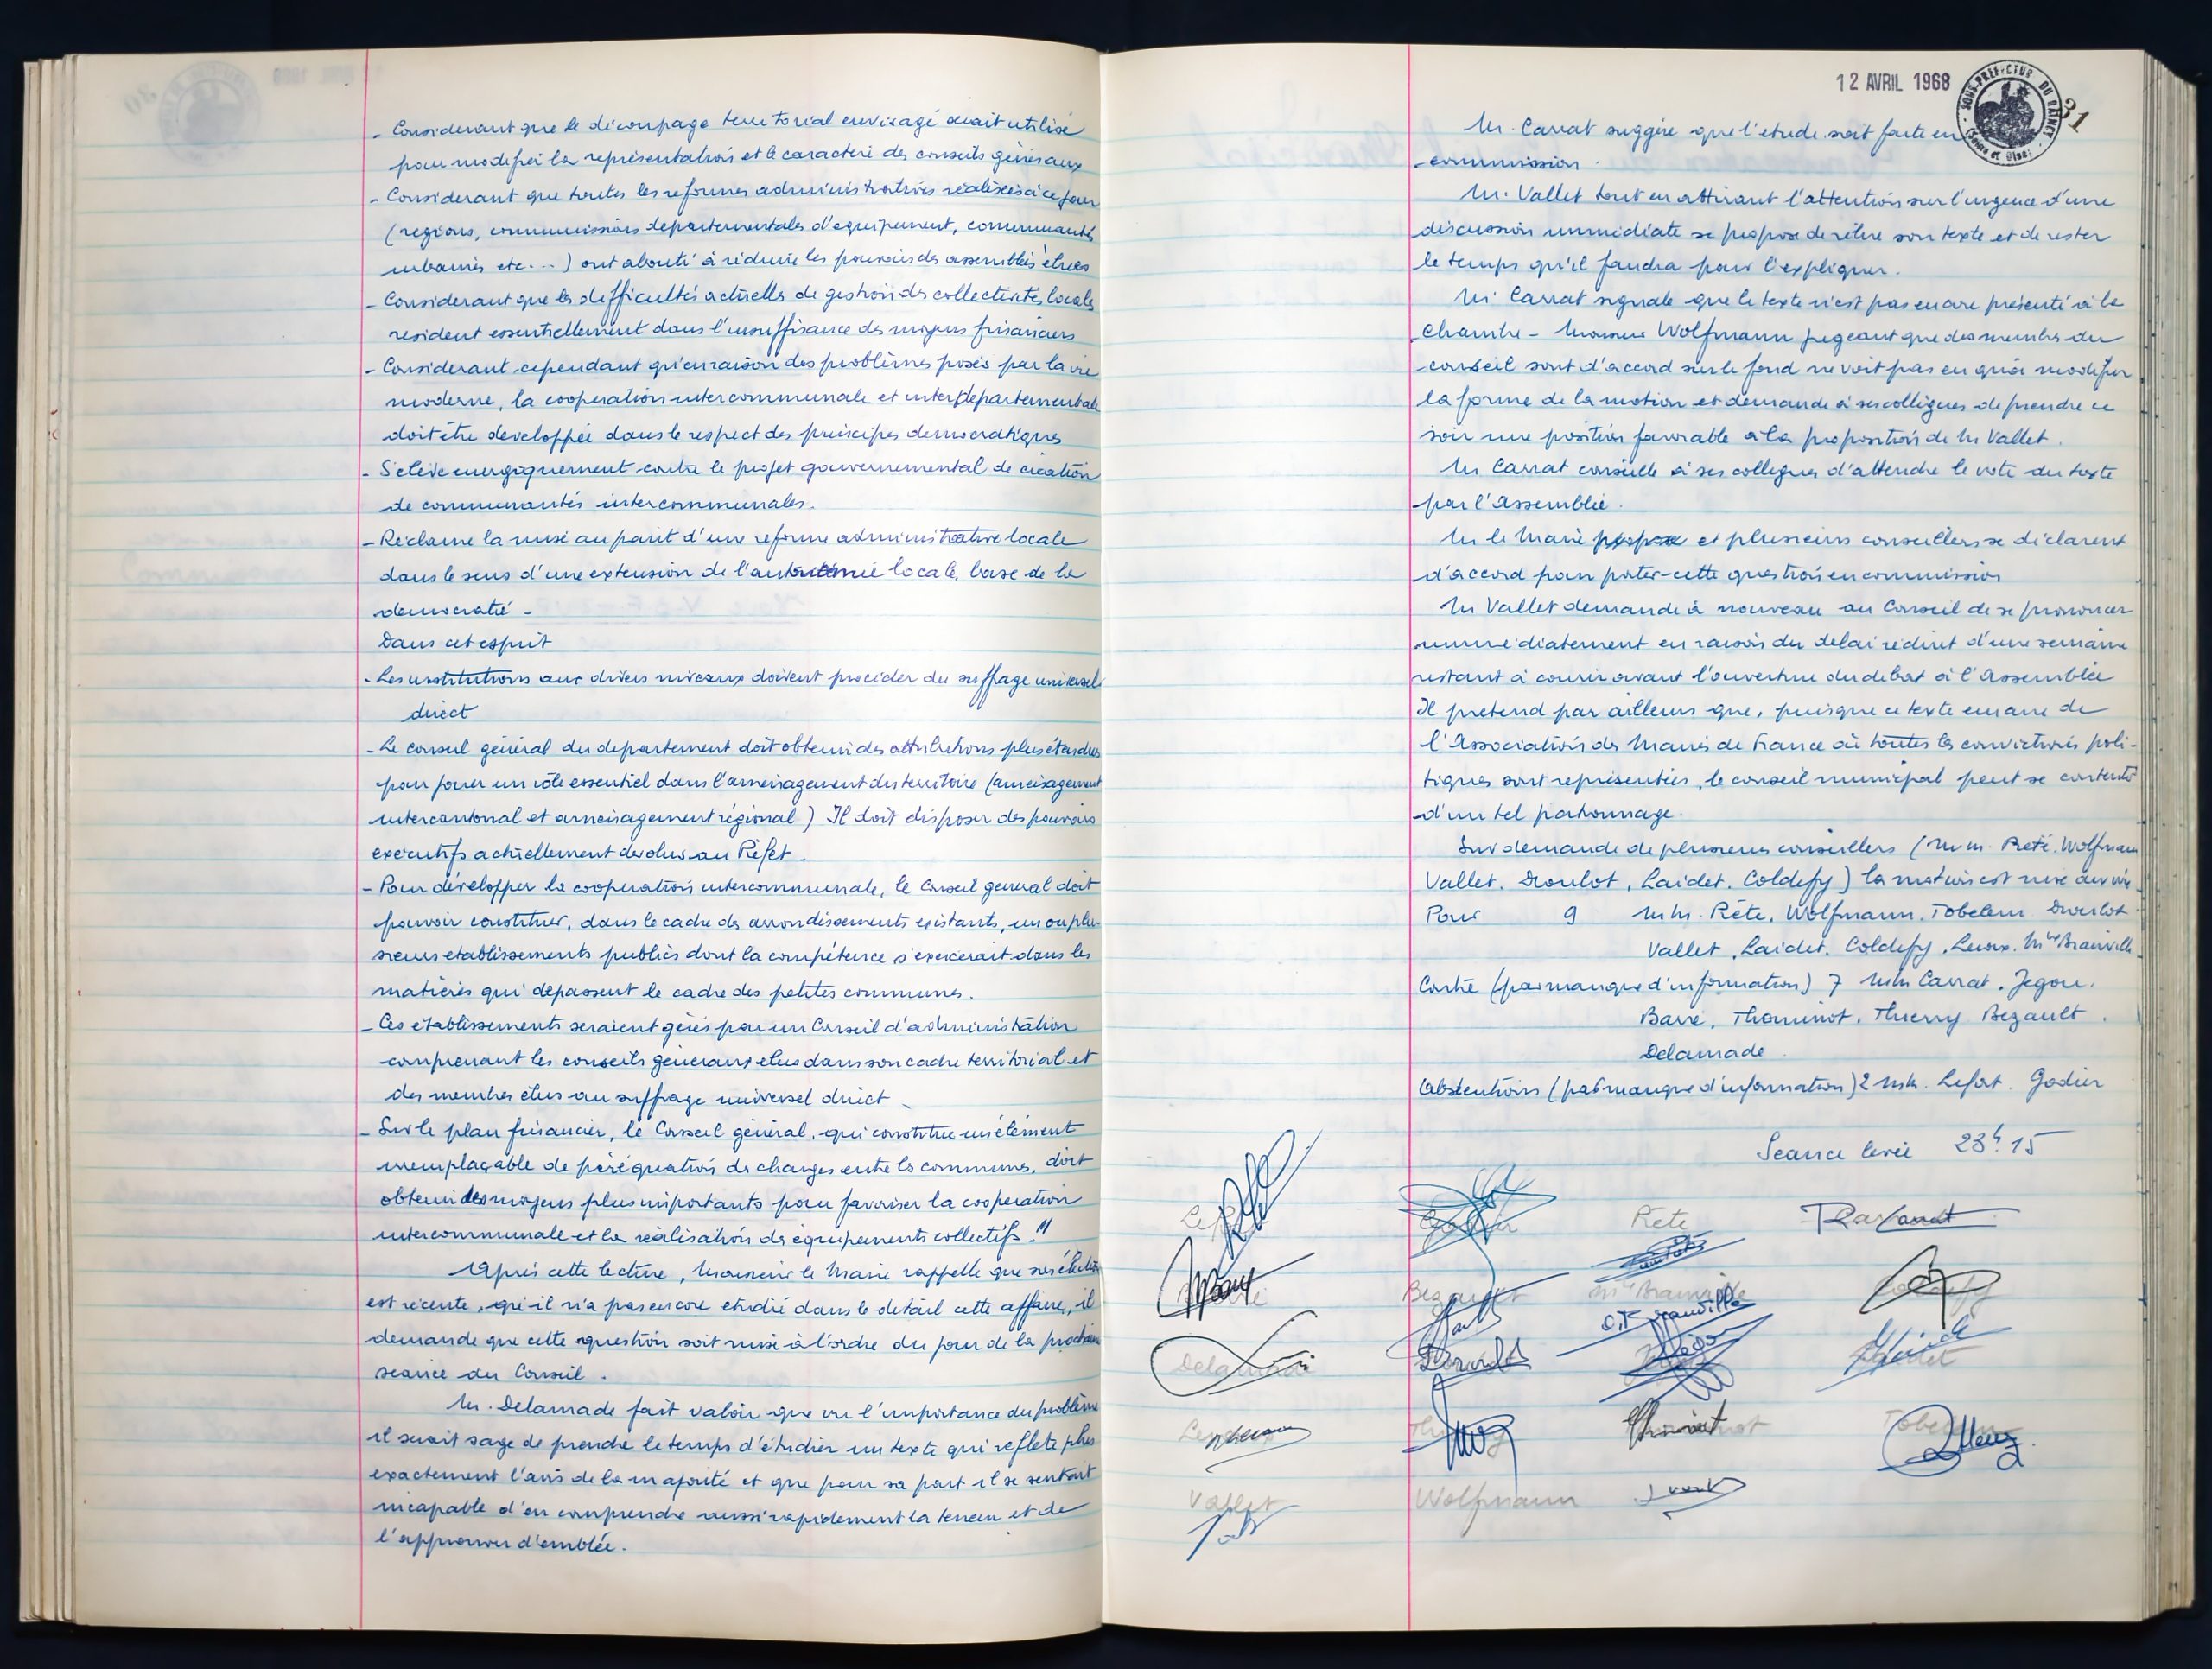 - Considerant que le découpage territorial envisagé serait utilisé
pour modifier la représentation et le caractère des conseils généraux
- Considerant que toutes les reformes administratives réalisées à ce jour
(regions, commissions departementales d'equipement, communautés
urbaines etc...) ont abouti à réduire les pouvoirs des assemblées élues
- Considerant que les difficultés actuelles de gestion des collectivités locales
resident essentiellement dans l'insuffisance des moyens financiers
- Considerant cependant qu'en raison des problèmes posés par la vie
moderne, la cooperation intercommunale et interdepartementale
doit être developpée dans le respect des principes democratiques
- S'elève energiquement contre le projet gouvernemental de création
de communautés intercommunales.
- Réclame la mise au point d'une reforme administrative locale
dans le sens d'une extension de l'autonomie locale, base de la
democratie -
Dans cet esprit
- Les institutions aux divers niveaux doivent procéder du suffrage universel
direct
- Le conseil général du departement doit obtenir des attributions plus étendues
pour jouer un rôle essentiel dans l'amenagement du territoire (amenagement
intercantonal et amenagement régional) Il doit disposer des pouvoirs
executifs actuellement devolus au Préfet -
- Pour développer la cooperation intercommunale, le Conseil general doit
pouvoir constituer, dans le cadre des arrondissements existants, un ou plu-
sieurs etablissements publics dont la compétence s'exercerait dans les
matières qui dépassent le cadre des petites communes.
- Ces établissements seraient gérés par un Conseil d'administration
comprenant les conseils généraux elus dans son cadre territorial et
des membres élus au suffrage universel direct
- Sur le plan financier, le Conseil général, qui constitue un élément
irremplaçable de péréquation de charges entre les communes, doit
obtenir des moyens plus importants pour favoriser la cooperation
intercommunale et la réalisation des équipements collectifs."
Après cette lecture, Monsieur le Maire rappelle que son élection
est récente, qu'il n'a pas encore etudié dans le detail cette affaire, il
demande que cette question soit mise à l'ordre du jour de la prochaine
seance du Conseil.
M. Delamade fait valoir que vu l'importance du problème
il serait sage de prendre le temps d'étudier un texte qui reflete plus
exactement l'avis de la majorité et que pour sa part il se sentait
incapable d'en comprendre aussi rapidement la teneur et de
l'approuver d'emblée.
12 AVRIL 1968
SOUS-PREFECTURE DU RAINCY
(Seine et Oise)
31
M. Carrat suggère que l'etude soit faite en
commission.
M. Vallet tout en attirant l'attention sur l'urgence d'une
discussion immédiate se propose de relire son texte et de rester
le temps qu'il faudra pour l'expliquer.
M. Carrat signale que le texte n'est pas encore présenté à la
Chambre - Monsieur Wolfmann jugeant que des membres du
conseil sont d'accord sur le fond ne voit pas en quoi modifier
la forme de la motion et demande à ses collègues de prendre ce
soir une position favorable à la proposition de M Vallet.
M Carrat conseille à ses collegues d'attendre le vote du texte
par l'Assemblée.
M le Maire propose et plusieurs conseillers se déclarent
d'accord pour porter cette question en commission
M Vallet demande à nouveau au Conseil de se prononcer
immediatement en raison du delai réduit d'une semaine
restant à courir avant l'ouverture du debat à l'Assemblée
Il pretend par ailleurs que, puisque ce texte emane de
l'Association des Maires de France où toutes les convictions poli-
tiques sont représentées, le conseil municipal peut se contenter
d'un tel patronnage.
Sur demande de plusieurs conseillers (M.M. Rété. Wolfmann
Vallet. Droulot, Laidet. Coldefy) la motion est mise aux voix
Pour 9 MM. Rète, Wolfmann, Tobelem Droulot
Vallet, Laidet. Coldefy, Leroux. Mme Brainville
Contre (par manque d'information) 7 MM Carrat. Jegou.
Barré, Thominot, Thierry Bezault.
Delamade
Abstentions (par manque d'information) 2 MM. Lefort. Godier
Seance levée 23h.15
Rète
Bezault Mme Brainville
Delamade
Vallet Wolfmann